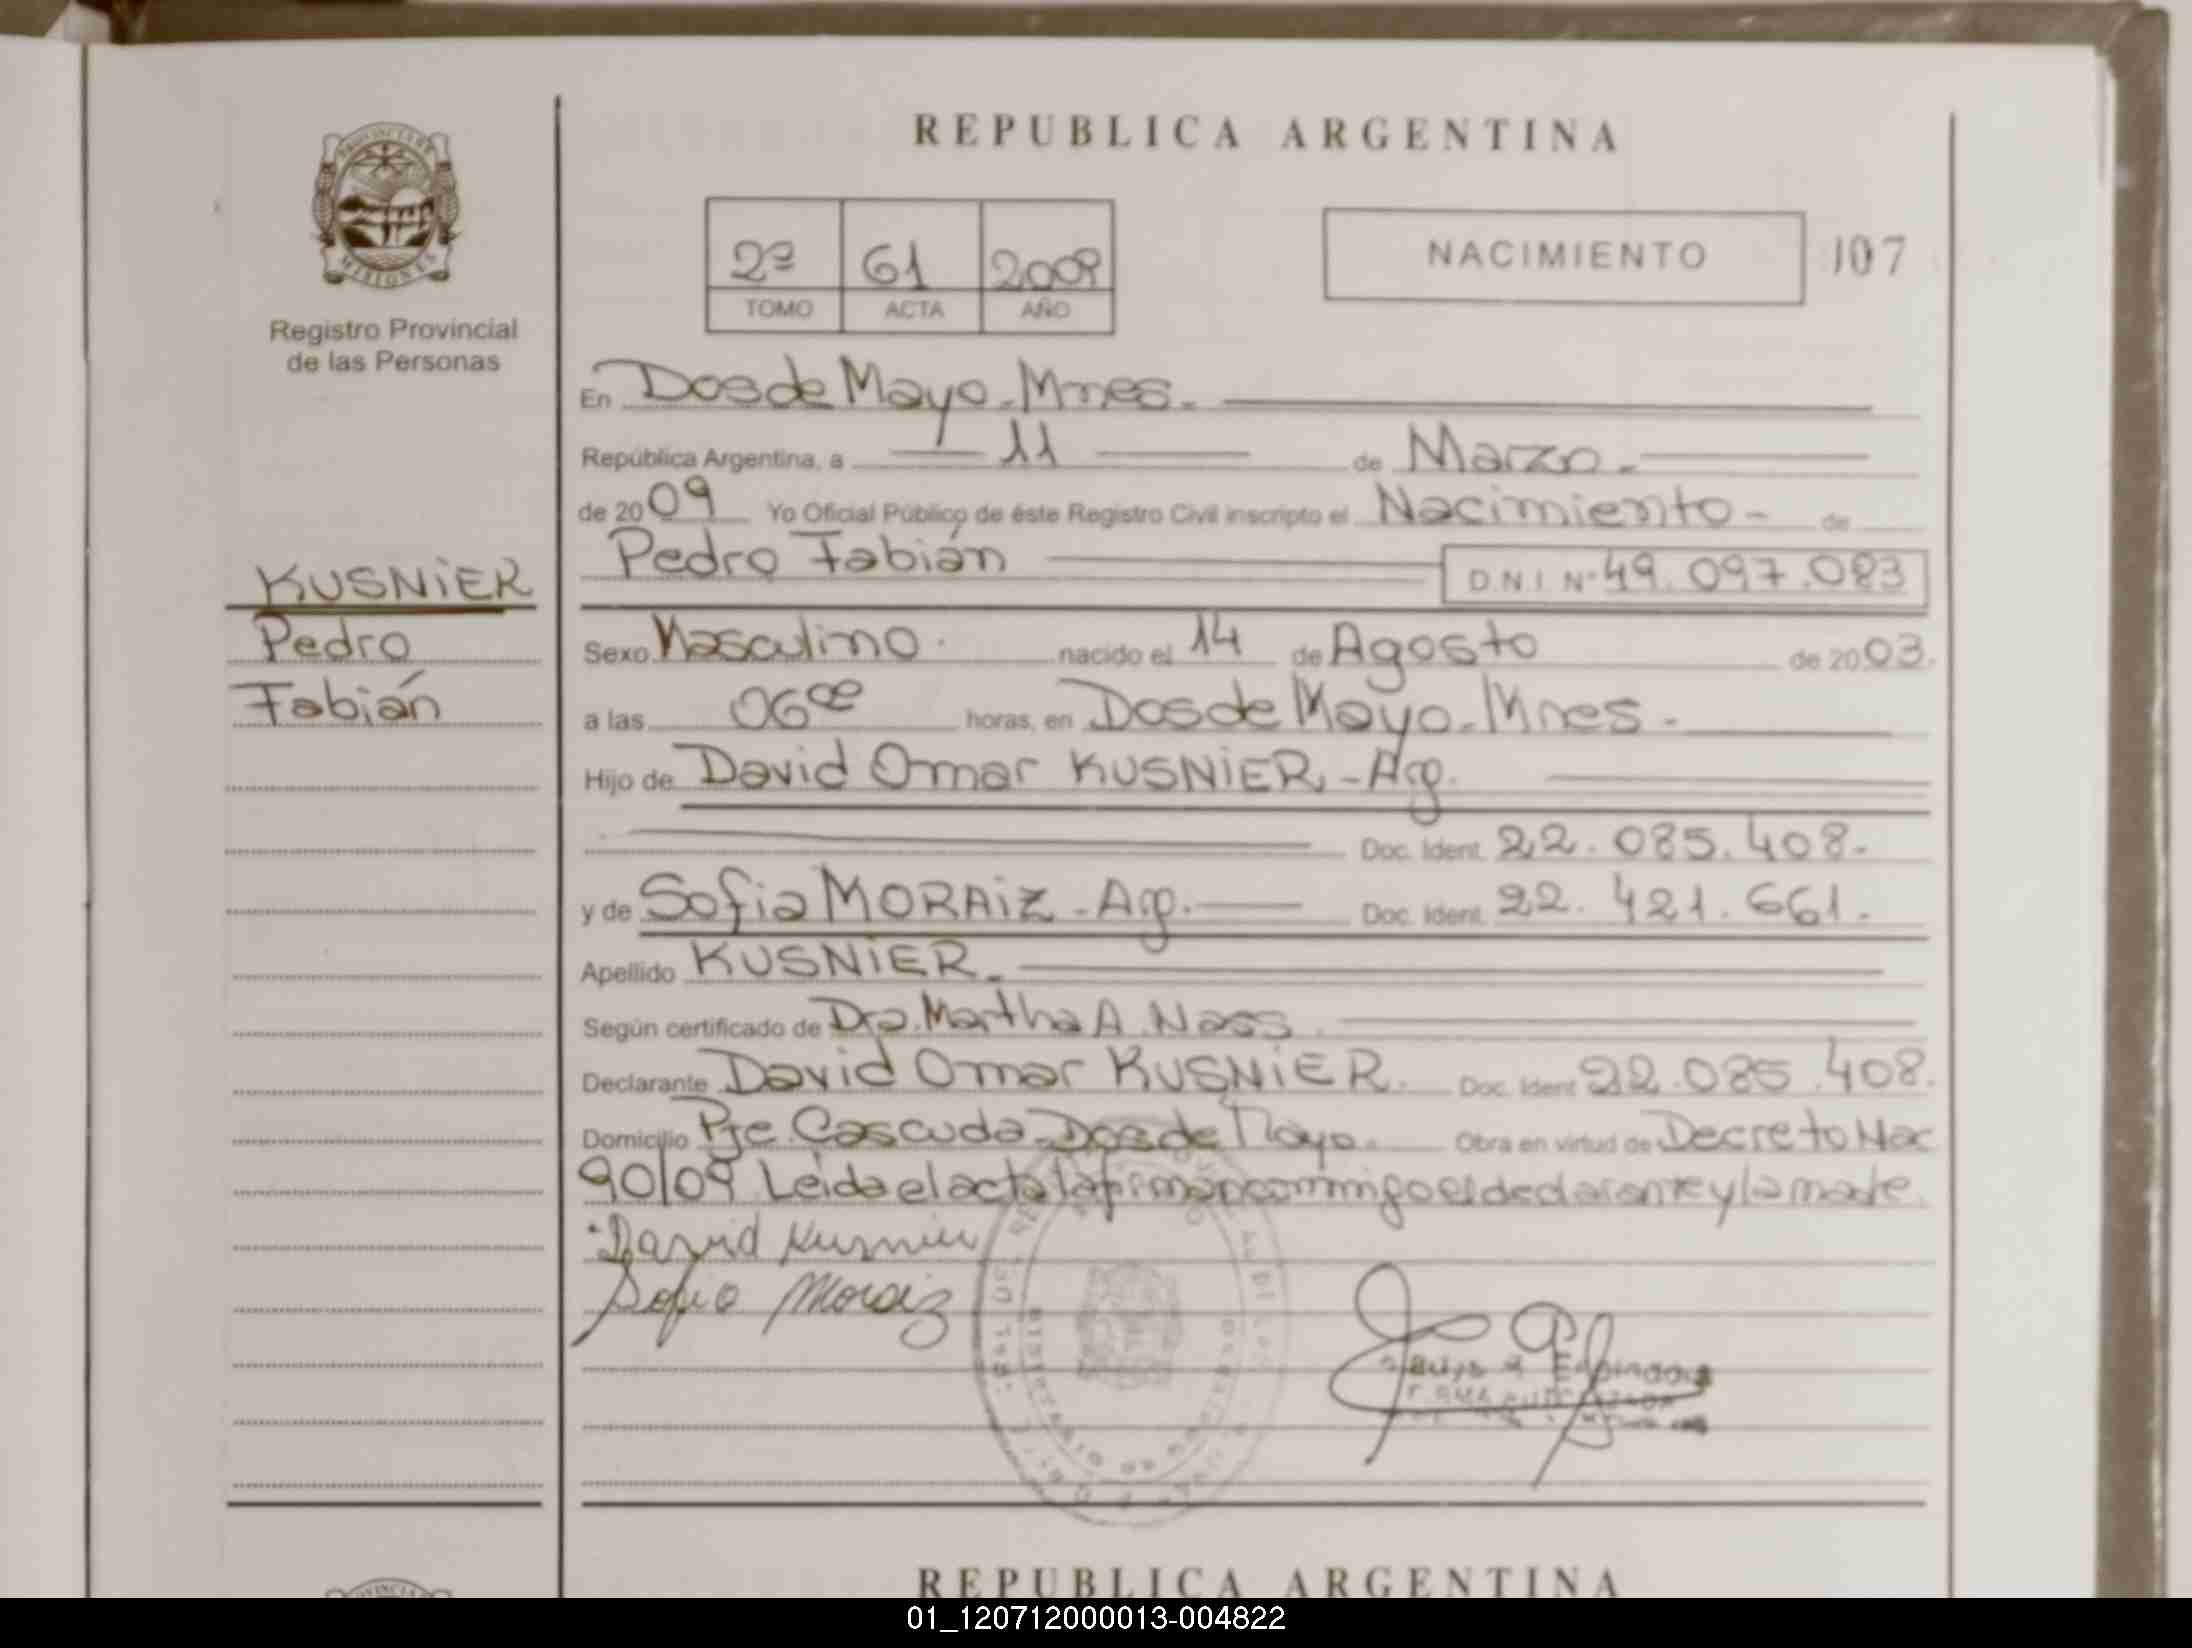 REPUBLICA ARGENTINA
PROVINCIA DE
MISIONES
Registro Provincial
de las Personas
2ª 61 2009
TOMO ACTA AÑO
NACIMIENTO 107
En Dos de Mayo-Mnes.
República Argentina, a 11 de Marzo.
de 2009 Yo Oficial Público de éste Registro Civil inscripto el Nacimiento - de
Pedro Fabián D.N.I. Nº 49.097.083
KUSNIER
Pedro
Fabián
Sexo Masculino. nacido el 14 de Agosto de 2003.
a las 06 00 horas, en Dos de Mayo-Mnes.
Hijo de David Omar KUSNIER-Arg.
Doc. Ident. 22.085.408.
y de Sofia MORAiZ-Arg. Doc. Ident. 22.421.661.
Apellido KUSNIER.
Según certificado de Dra. Martha A. Nass
Declarante David Omar KUSNIER. Doc. Ident 22.085.408.
Domicilio Pje. Cascuda-Dos de Mayo. Obra en virtud de Decreto Nac
90/09 Leida el acta la firman conmigo el declarante y la madre
David Kusnier
Sofia Moraiz
REPUBLICA ARGENTINA
01_120712000013-004822